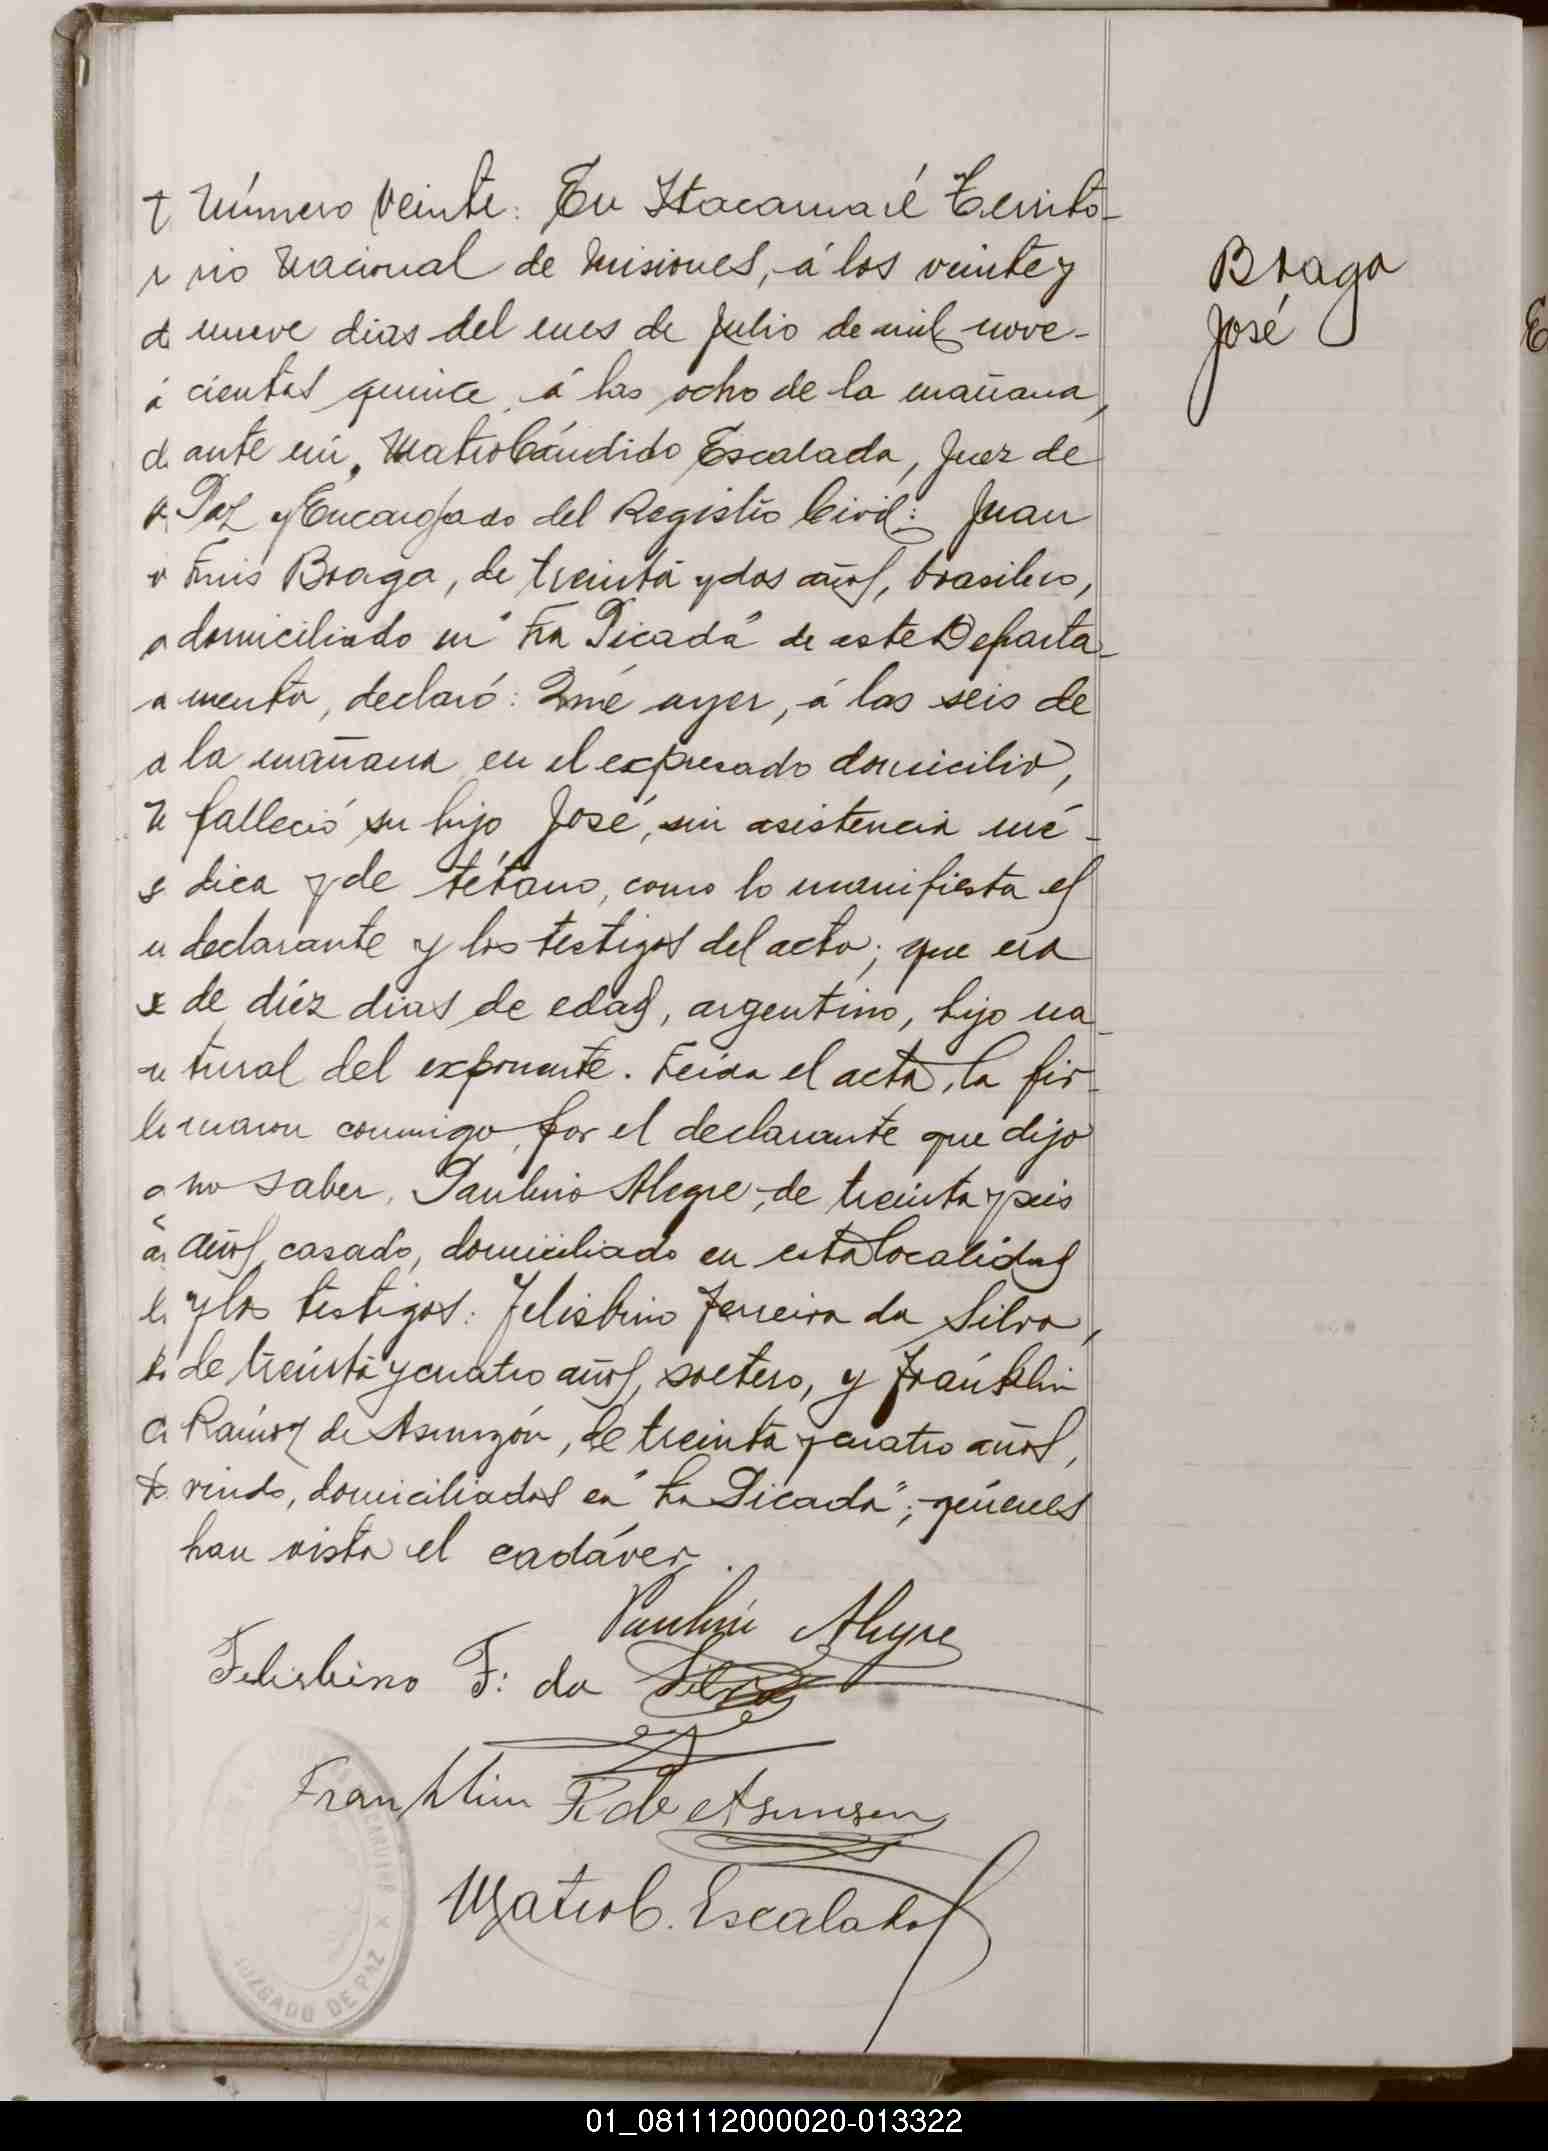 Número Veinte: En Itacaruaré Territo-
rio Nacional de Misiones, á los veinte y
nueve dias del mes de Julio de mil nove-
cientos quince, á las ocho de la mañana,
ante mí, Mateo Cándido Escalada, Juez de
Paz y Encargado del Registro Civil: Juan
Luis Braga, de treinta y dos años, brasilero,
domiciliado en "La Picada" de este Departa-
mento, declaró: Qué ayer, á las seis de
la mañana en el expresado domicilio,
falleció su hijo José, sin asistencia mé-
dica y de tétano, como lo manifiesta el
declarante y los testigos del acto; que era
de diéz dias de edad, argentino, hijo na-
tural del exponente. Leida el acta, la fir-
maron conmigo, por el declarante que dijo
no saber, Paulino Alegre, de treinta y seis
años, casado, domiciliado en esta localidad
y los testigos: Felisbino Ferreira da Silva,
de treinta y cuatro años, soltero, y Fránklin
de Asunzón, de treinta y cuatro años,
viudo, domiciliados en "La Picada"; quienes
han visto el cadáver.
Braga
José
Alegre
Felisbino F: da Silva
Franklin R. de Asunsen
Mateo C. Escalada
JUZGADO DE PAZ
01_081112000020-013322